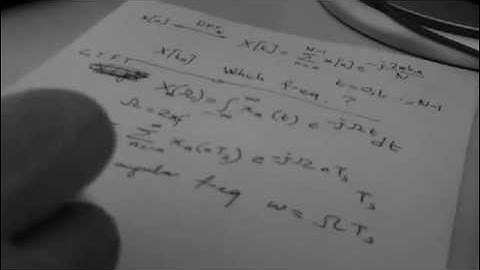 x[n] DFT X[k] = \sum_{n=0}^{N-1} x[n] e^{-j2πkn/N}
X[k] which freq. ? k=0,1, ... N-1
CTFT
X(Ω) = \int_{-∞}^{∞} x_a(t) e^{-jΩt} dt
Ω = 2πf
= \sum_{n=-∞}^{∞} x_a(nT_s) e^{-jΩnT_s} T_s
freq ω = ΩT_s